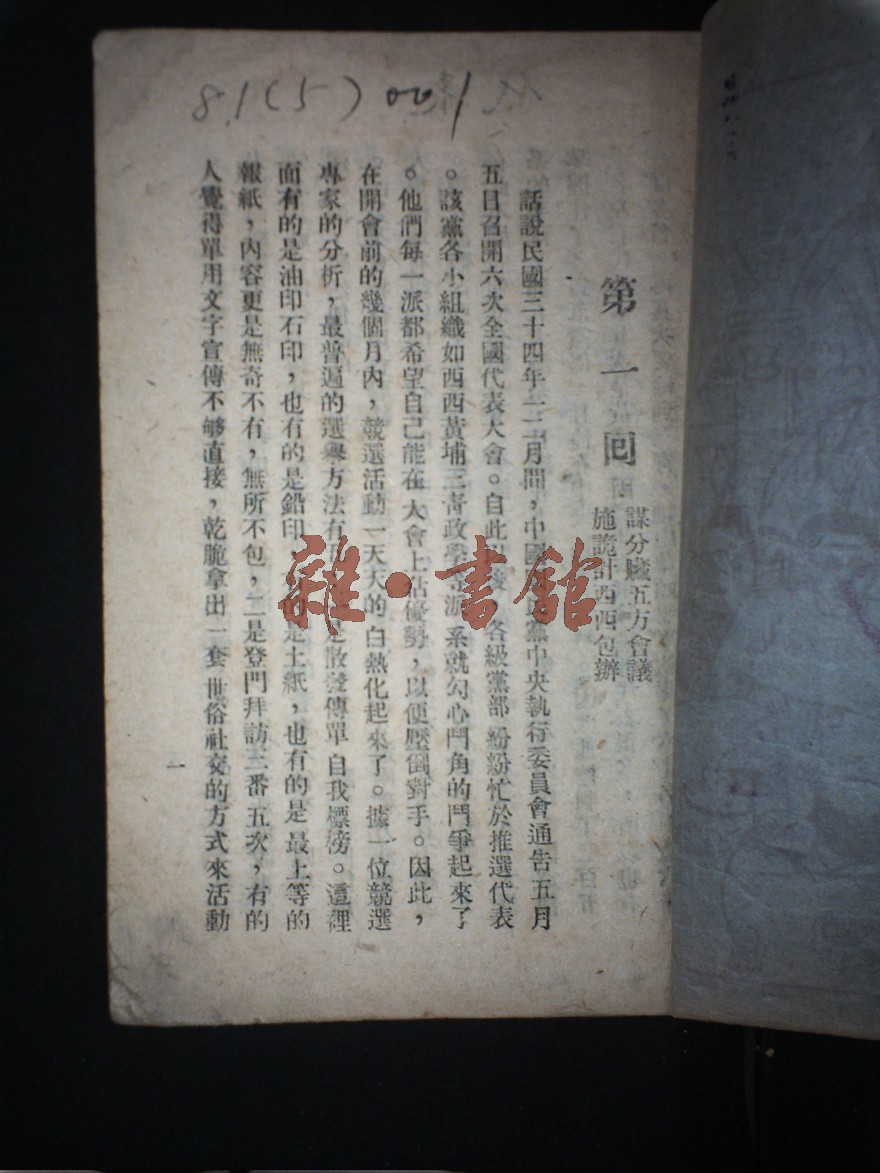 81(5) 001
第一回
謀分贜五方會議
施詭計西西包辦
話說民國三十四年一二月間，中國 黨中央執行委員會通告五月
五日召開六次全國代表大會。自此 各級黨部紛紛忙於推選代表
。該黨各小組織如西西黃埔三青政學 派系就勾心鬥角的鬥爭起來了
。他們每一派都希望自己能在大會上佔優勢，以便壓倒對手。因此，
在開會前的幾個月內，競選活動一天天的白熱化起來了。據一位競選
專家的分析，最普遍的選舉方法有 是散發傳單自我標榜。這裡
面有的是油印石印，也有的是鉛印， 的是土紙，也有的是最上等的
報紙，內容更是無奇不有，無所不包，二是登門拜訪三番五次，有的
人覺得單用文字宣傳不够直接，乾脆拿出一套世俗社交的方式來活動
一
雜·書館